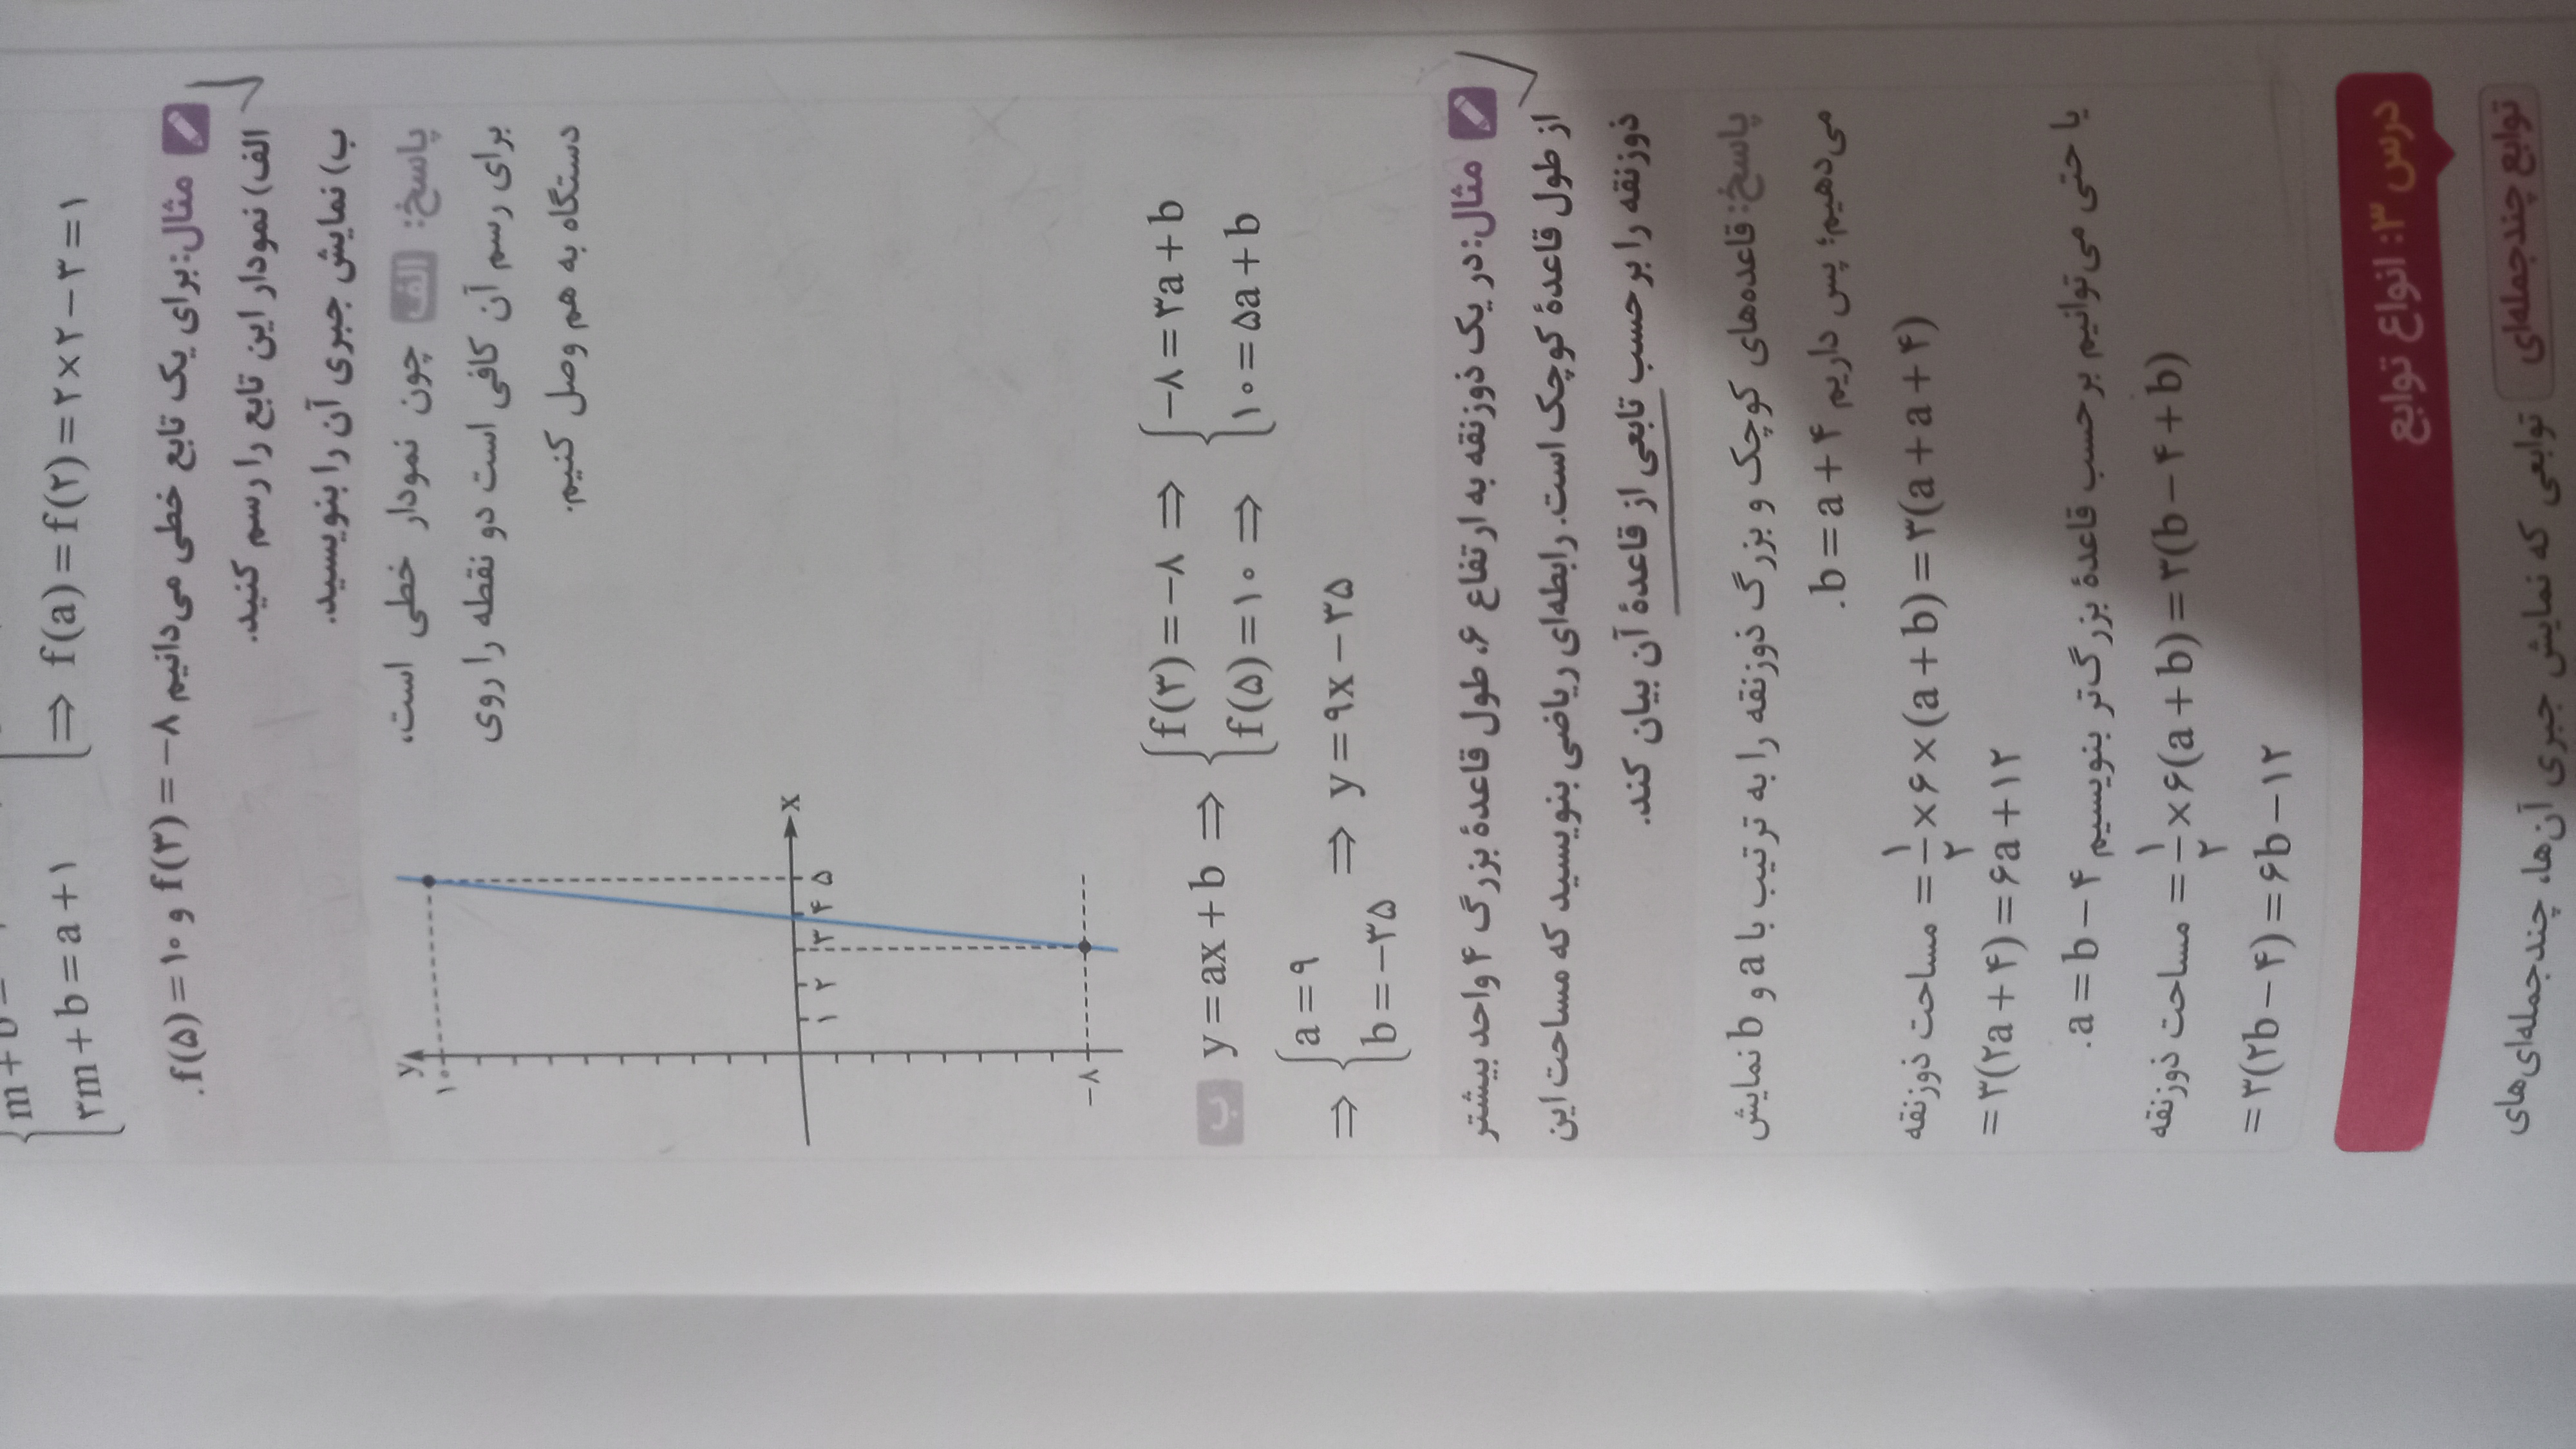 ⇒ f(a) = f(۲) = ۲×۲ − ۳ = ۱
۳m + b = a + ۱
مثال: برای یک تابع خطی می‌دانیم f(۳) = −۸ و f(۵) = ۱۰.
الف) نمودار این تابع را رسم کنید.
ب) نمایش جبری آن را بنویسید.
پاسخ: الف چون نمودار خطی است،
برای رسم آن کافی است دو نقطه را روی
دستگاه به هم وصل کنیم.
y
۱۰
x
۱ ۲ ۳ ۴ ۵
−۸
ب y = ax + b ⇒ { f(۳) = −۸ ⇒ { −۸ = ۳a + b
f(۵) = ۱۰ ⇒ ۱۰ = ۵a + b
⇒ { a = ۹
b = −۳۵ ⇒ y = ۹x − ۳۵
مثال: در یک ذوزنقه به ارتفاع ۶، طول قاعدهٔ بزرگ ۴ واحد بیشتر
از طول قاعدهٔ کوچک است. رابطه‌ای ریاضی بنویسید که مساحت این
ذوزنقه را بر حسب تابعی از قاعدهٔ آن بیان کند.
پاسخ: قاعده‌های کوچک و بزرگ ذوزنقه را به ترتیب با a و b نمایش
می‌دهیم؛ پس داریم b = a + ۴.
مساحت ذوزنقه = ۱/۲ × ۶ × (a + b) = ۳(a + a + ۴)
= ۳(۲a + ۴) = ۶a + ۱۲
یا حتی می‌توانیم بر حسب قاعدهٔ بزرگ‌تر بنویسیم a = b − ۴.
مساحت ذوزنقه = ۱/۲ × ۶(a + b) = ۳(b − ۴ + b)
= ۳(۲b − ۴) = ۶b − ۱۲
درس ۳: انواع توابع
توابع چندجمله‌ای توابعی که نمایش جبری آن‌ها، چندجمله‌ای‌های